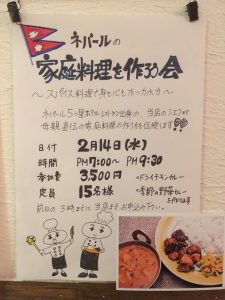 ネパールの
家庭料理を作ろう会
～スパイス料理で身も心もホッカホカ～
ネパール5つ星ホテルレストラン出身の、当店のシェフが
母親直伝の家庭料理の作り方を伝授します
日付 2月14日(水)
時間 PM7:00～PM9:30
参加費 3,500円
定員 15名様
・ドライチキンカレー
・季節の野菜カレー
前日の3時までに当店までお申込み下さい。